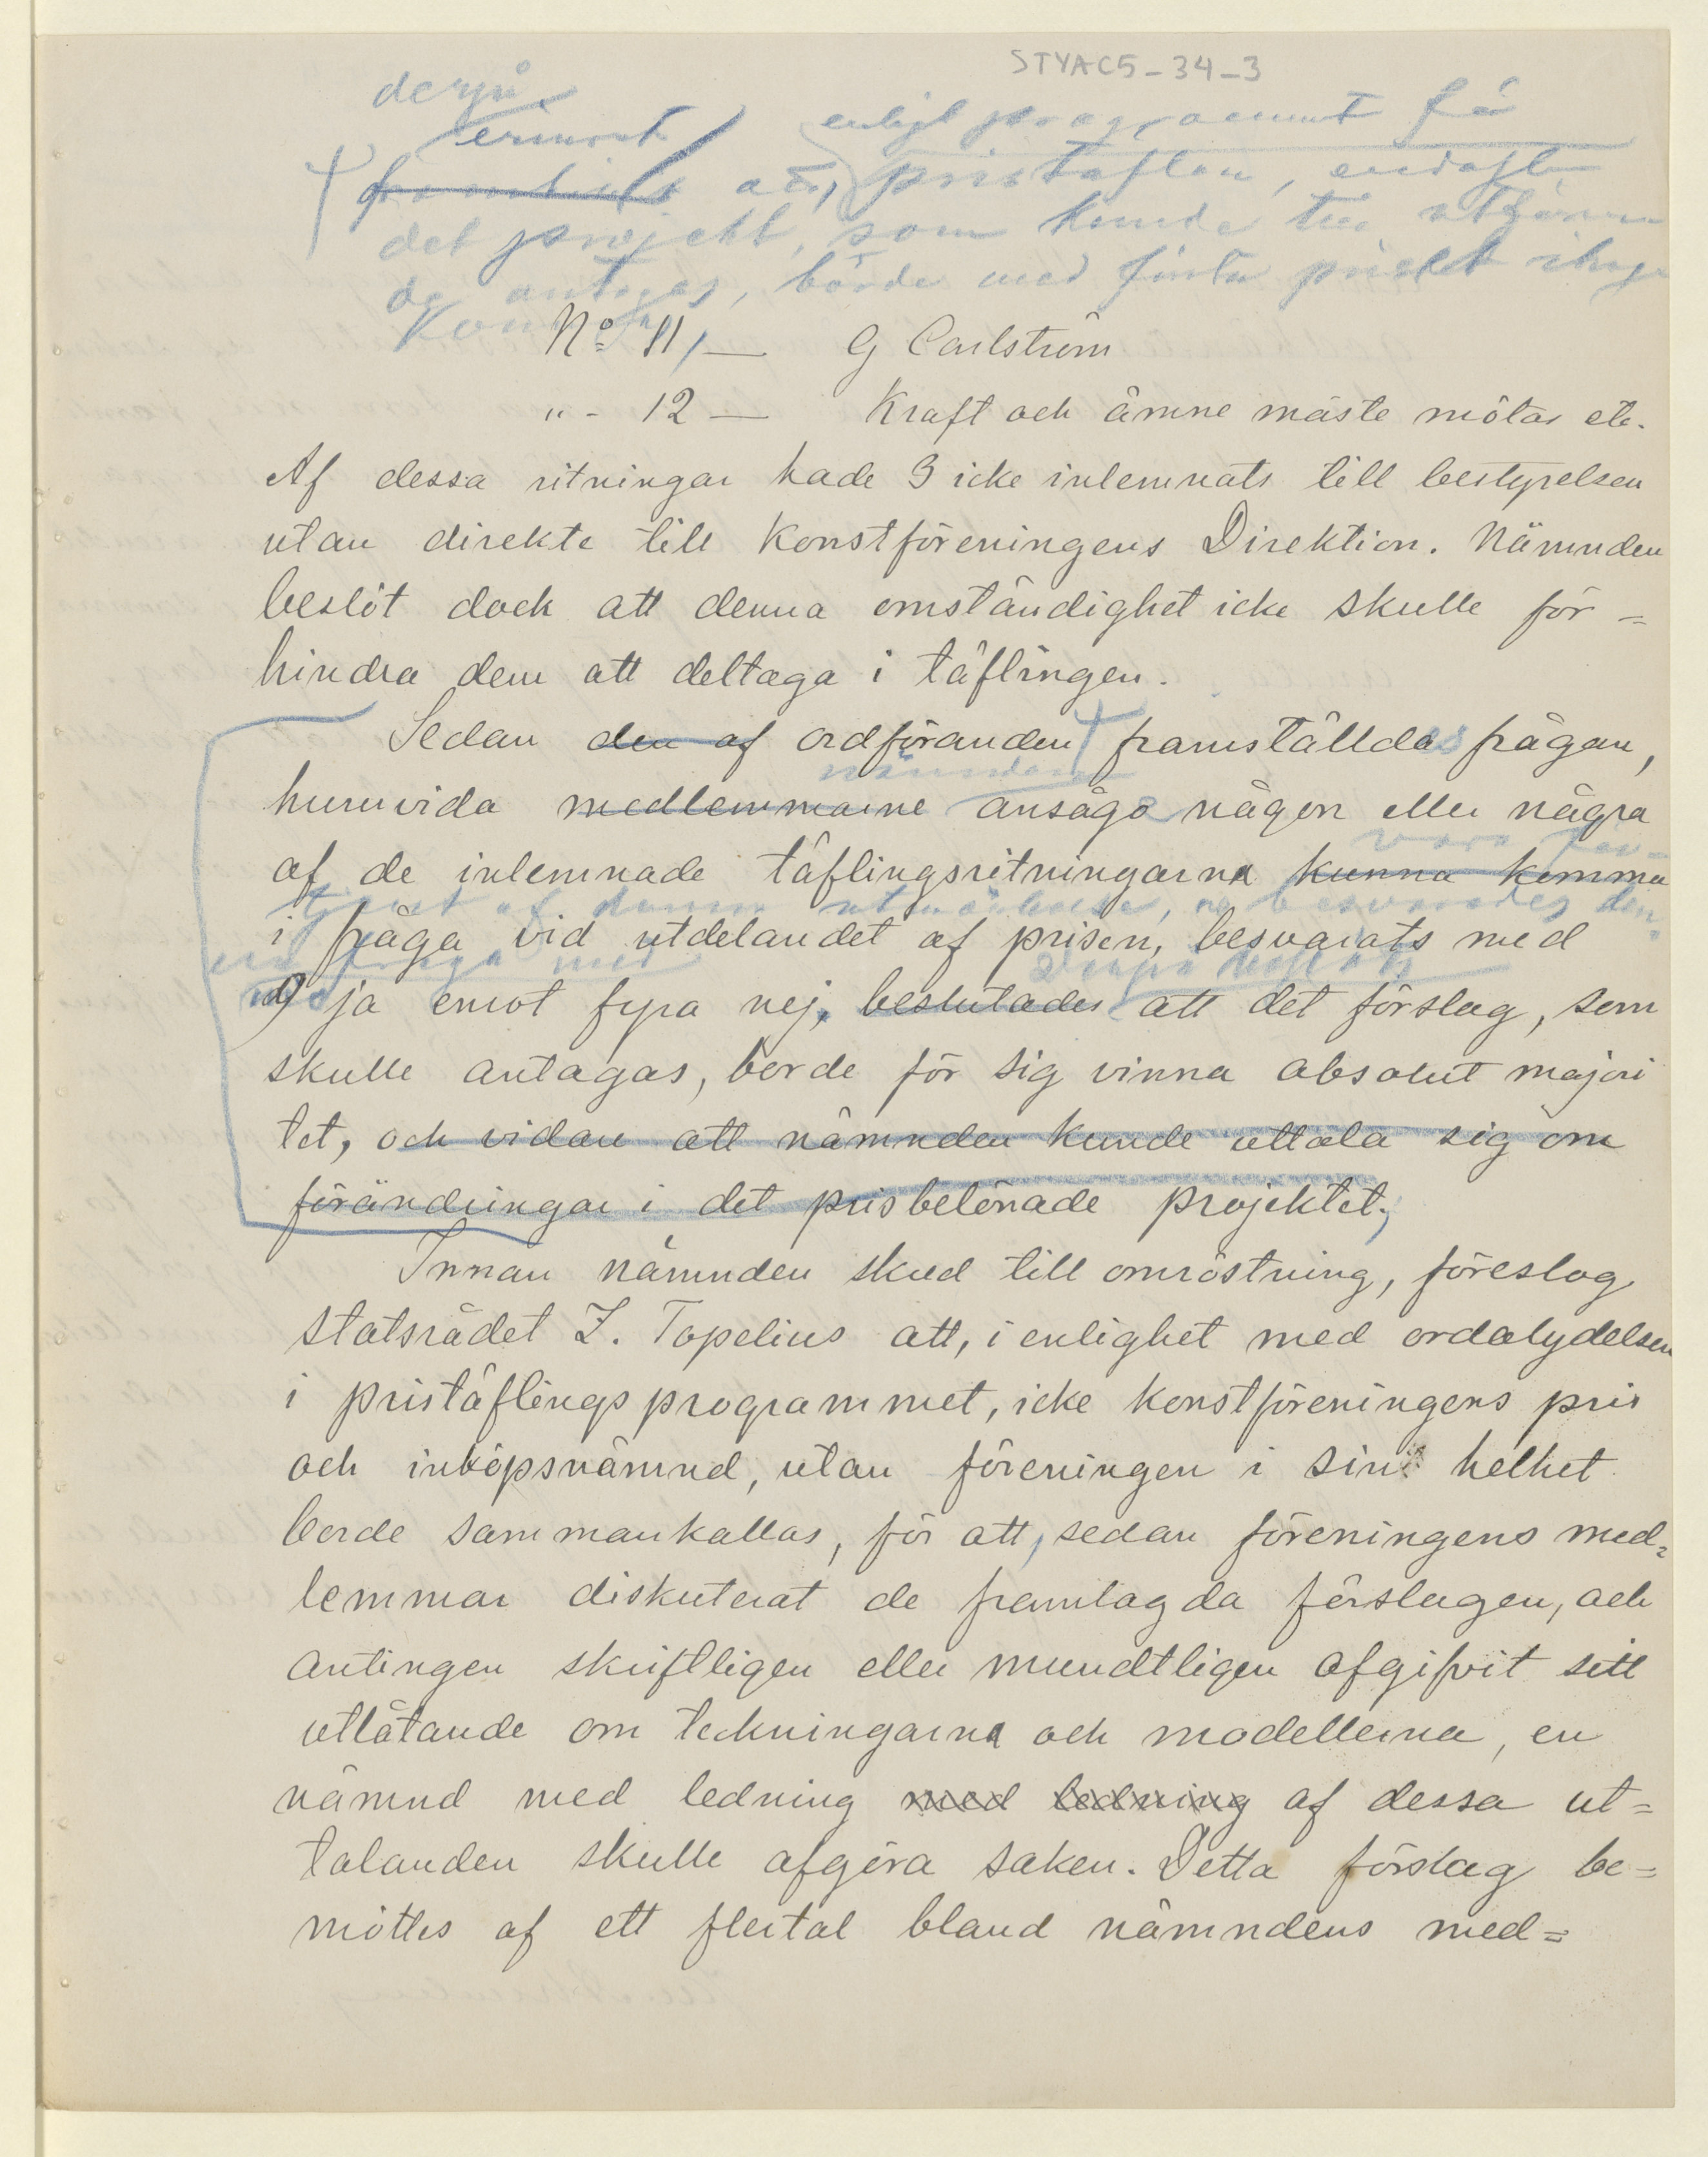 STYAC5-34-3
derpå
enligt programmet få
att, pristäflan, endast
det projekt, som kunde till utföran
de antagas, borde med första priset ihog
kom
No 11, — G Carlström
"- 12 — Kraft och ämne måste mötas etc.
Af dessa ritningar hade 3 icke inlemnats till bestyrelsen
utan direkte till Konstföreningens Direktion. Nämnden
beslöt dock att denna omständighet icke skulle för=
hindra dem att deltaga i täflingen.
Sedan den af ordföranden framställdes frågan,
nämnden
huruvida medlemmarne ansågo någon eller några
vara för-
af de inlemnade täflingsritningarna kunna komma
tjent af denna utmärkelse, besvarades den
i fråga vid utdelandet af prisen, besvarats med
fråga med
9 ja emot fyra nej, beslutades att det förslag, som
skulle antagas, borde för sig vinna absolut majori
tet, och vidare att nämnden kunde uttala sig om
förändringar i det prisbelönade projektet.
Innan nämnden skred till omröstning, föreslog
statsrådet Z. Topelius att, i enlighet med ordalydelsen
i pristäflingsprogrammet, icke konstföreningens pris
och inköpsnämnd, utan föreningen i sin helhet
borde sammankallas, för att, sedan föreningens med=
lemmar diskuterat de framlagda förslagen, och
antingen skriftligen eller mundtligen afgifvit sitt
utlåtande om teckningarna och modellerna, en
nämnd med ledning med ledning af dessa ut=
talanden skulle afgöra saken. Detta förslag be=
möttes af ett flertal bland nämndens med=